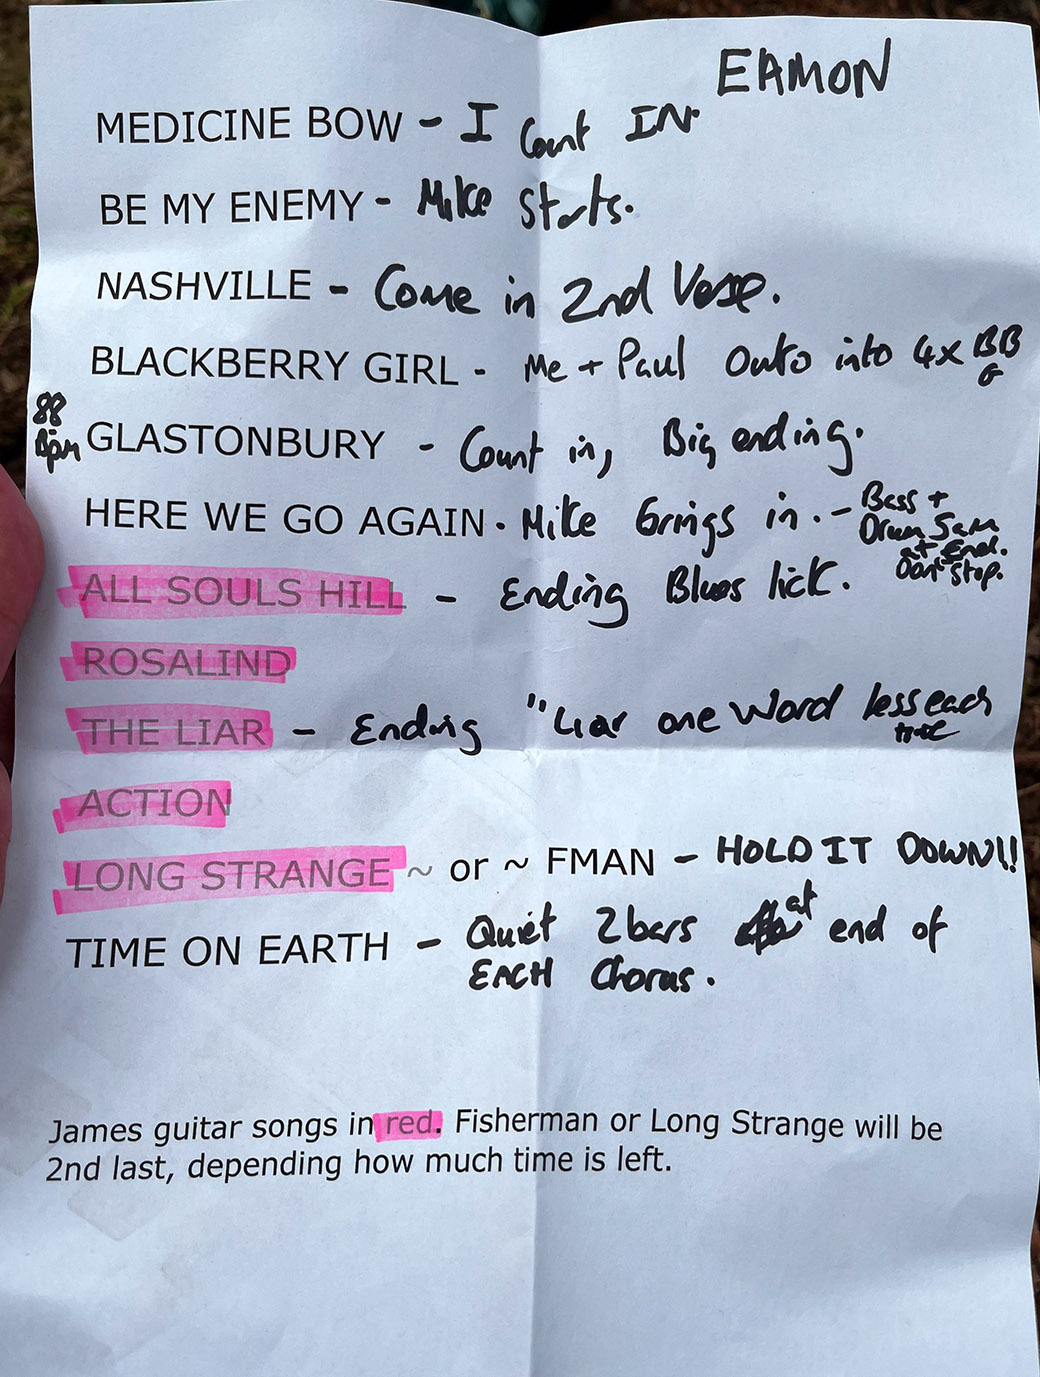 EAMON
MEDICINE BOW - I Count IN.
BE MY ENEMY - Mike Starts.
NASHVILLE - Come in 2nd Verse.
BLACKBERRY GIRL - Me + Paul Outro into 4x BB G
88 Bpm GLASTONBURY - Count in, Big ending.
HERE WE GO AGAIN - Mike Brings in. - Bass +
Drum Jam
at End.
Dont Stop.
ALL SOULS HILL - Ending Blues lick.
ROSALIND
THE LIAR - Ending "Liar one word less each
time
ACTION
LONG STRANGE ~ or ~ FMAN - HOLD IT DOWN!!
TIME ON EARTH - Quiet 2 bars at end of
EACH Chorus.
James guitar songs in red. Fisherman or Long Strange will be
2nd last, depending how much time is left.